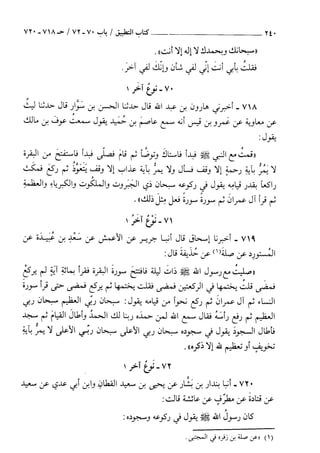 ٢٤٠ ــــــــ كتاب التطبيق / باب ٧٠ - ٧٢ / حـ ٧١٨ - ٧٢٠
«سبحانك وبحمدك لا إله إلا أنت».
فقلتُ بأبي أنتَ إنّي لفي شأن وإنّك لفي آخرَ.
٧٠ - نوعٌ آخر ١
٧١٨ - أخبرني هارون بن عبد الله قال حدثنا الحسن بن سَوَّار قال حدثنا ليثُ
عن معاوية عن عَمرو بن قيس أنه سمع عاصمَ بن حُميد يقول سمعتُ عوفَ بن مالك
يقول:
«قمتُ مع النبي ﷺ فبدأ فاستاكَ وتوضأ ثم قامَ فصلّى فبدأ فاستفتحَ من البقرة
لا يَمُرُّ بآية رحمةٍ إلا وقف فسأل ولا يمرُّ بآية عذاب إلا وقف يَتَعوّذُ ثم ركعَ فمكثَ
راكعاً بقدر قيامِه يقول في ركوعه سبحان ذي الجَبروت والملكوت والكبرياءِ والعظمةِ
ثم قرأ آل عمرانَ ثم سورةً سورةً فعل مثل ذلك».
٧١ - نَوعٌ آخرُ ١
٧١٩ - أخبرنا إسحاق قال أنبا جرير عن الأعمش عن سَعْدِ بن عُبيدةَ عن
المُستورد عن صلة(١) عن حُذيفةَ قال:
«صليتُ مع رسول الله ﷺ ذاتَ ليلة فافتتحَ سورةَ البقرة فقرأ بمائة آيةٍ لم يركعْ
فمضى قلت يختمها في الركعتين فمضى فقلت يختمها ثم يركع فمضى حتى قرأ سورة
النساء ثم آل عمران ثم ركع نحواً من قيامه يقول: سبحان ربي العظيم سبحان ربي
العظيم ثم رفع رأسَهُ فقال سمع الله لمن حمدَه ربنا لك الحمدُ وأطالَ القيامَ ثم سجد
فأطال السجودَ يقول في سجوده سبحان ربي الأعلى سبحان ربّي الأعلى لا يمرُّ بآيةِ
تخويفٍ أو تعظيمٍ لله إلا ذكره».
٧٢ - نوعٌ آخر ١
٧٢٠ - أنبا بندار بن بَشَّار عن يحيى بن سعيد القطانِ وابن أبي عدي عن سعيد
عن قتادةَ عن مطرِّف عن عائشة قالت:
كان رسولُ الله ﷺ يقول في ركوعه وسجوده:
(١) «عن صلة بن زفر» في المجتبى.